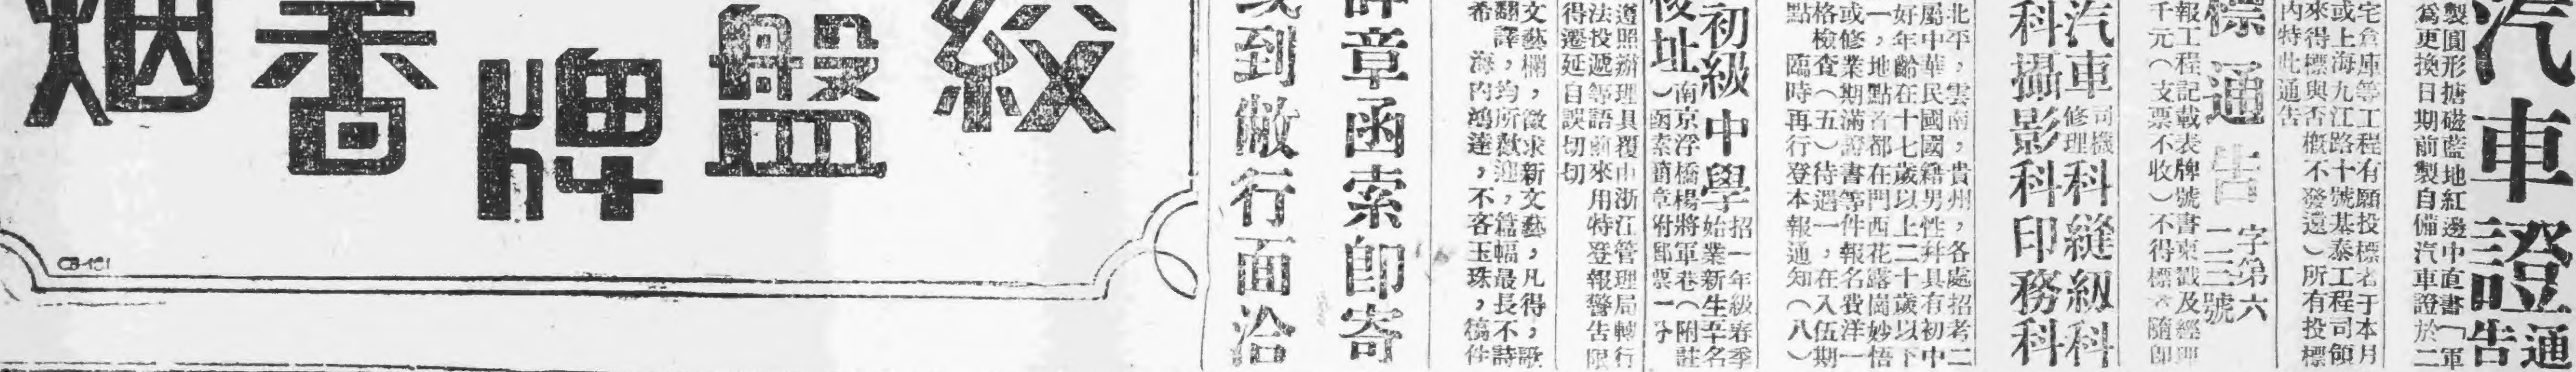 汽車證
通告
製圓形搪磁藍地紅邊中直書「軍
為更換日期前製自備汽車證於二
宅倉庫等工程有願投標者于本月
或上海九江路十號基泰工程司領
來得標與否概不發還）所有投標
內特此通告
標通告
字第六
二三號
報工程記載表牌號書柬戳及經理
千元（支票不收）不得標者隨即
汽車司機修理科縫級科
科攝影科印務科
北平，雲南，貴州，各處招考二
屬中華民國國籍男性幷具有初中
好年齡在十七歲以上二十歲以下
一，地點首都在門西花露崗妙悟
或修業期滿證書等件報名費洋一
格檢查（五）待遇一，在入伍期
點臨時再行登本報通知（八）
初級中學
招一年級春季
始業新生卒名
校址
南京浮橋楊將軍巷（附註
）函索簡章附郵票一分
遵照辦理具覆由浙江管理局轉行
法投遞等語前來用特登報警告限
得遷延自誤切切
文藝欄，徵求新文藝，凡得，歌
翻譯，均所歡迎，篇幅最長不詩
希海內鴻達，不吝玉珠，稿件
詳章函索卽寄
或到敝行面洽
絞盤牌香烟
CB-161